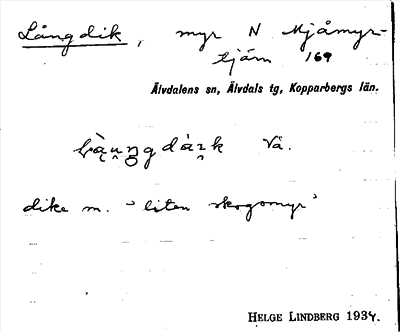 Långdik, myr N Mjåmyr-
tjärn 169
Älvdalens sn, Älvdals tg, Kopparbergs län.
Vå.
dike m. "liten skogsmyr"
HELGE LINDBERG 1934.